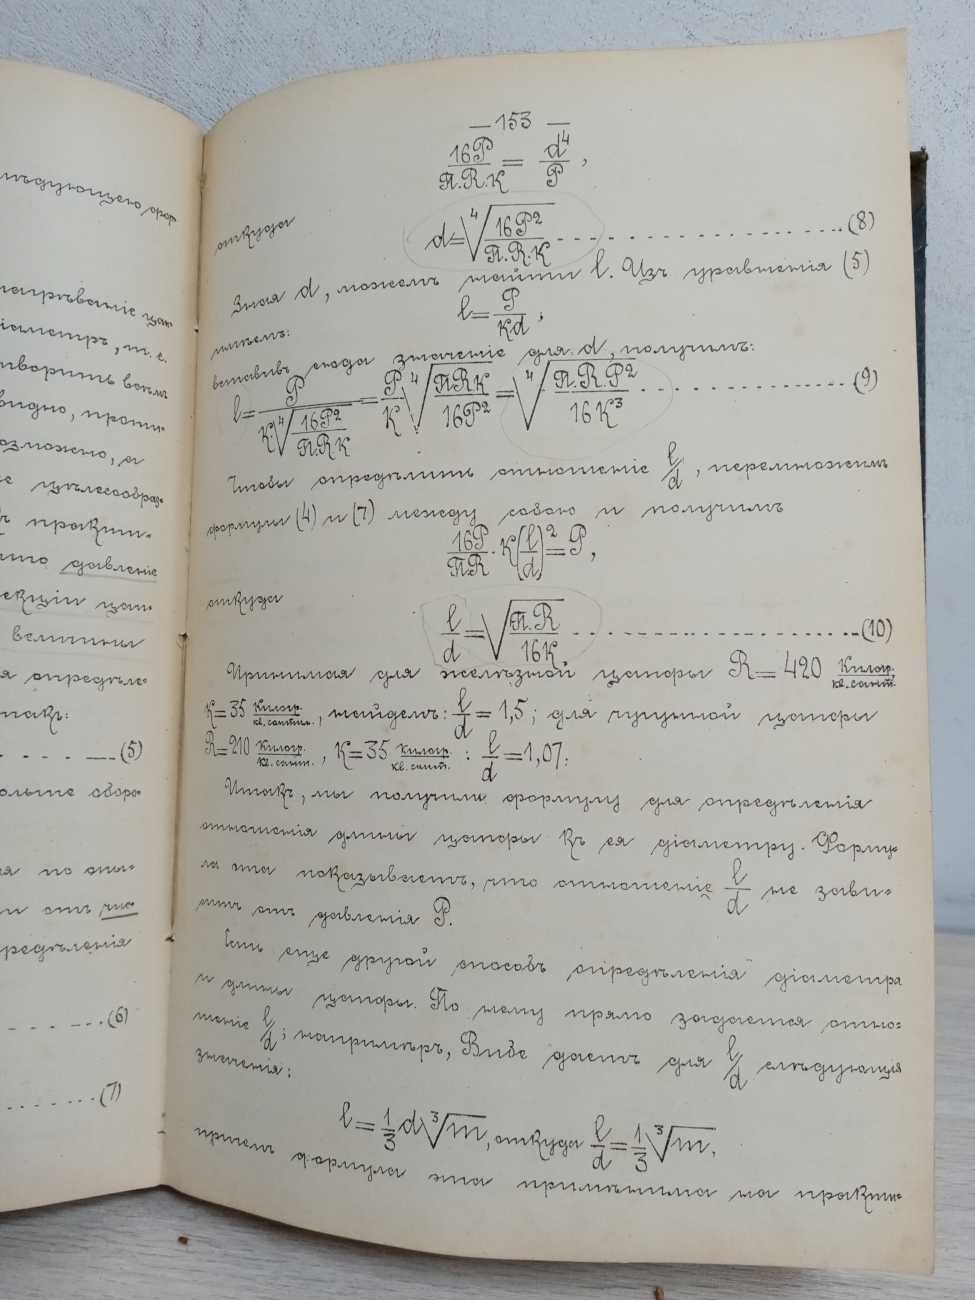 — 153 —
16P/π.R.K = d⁴/P ,
откуда
d = ⁴√(16P²/π.R.K) - - - - - - - - - - - - - - - (8)
Зная d, можемъ найти l. Изъ уравненія (5)
имѣемъ:
l = P/Kd ,
вставивъ сюда значеніе для d, получимъ:
l = P/(K ⁴√(16P²/πRK)) = P/K ⁴√(πRK/16P²) = ⁴√(π.R.P²/16K³) - - - - - - - - - - - - (9)
Чтобы опредѣлить отношеніе l/d , перемножимъ
формулы (4) и (7) между собою и получимъ
16P/πR · K (l/d)² = P,
откуда
l/d = √(π.R/16K) - - - - - - - - - - - - - - - (10)
Принимая для желѣзной цапфы R = 420 Килогр./кв.сант.
K = 35 Килогр./кв.сантим., найдемъ: l/d = 1,5; для чугунной цапфы
R = 210 Килогр./кв.сант. , K = 35 Килогр./кв.сант. : l/d = 1,07.
Итакъ, мы получили формулу для опредѣленія
отношенія длины цапфы къ ея діаметру. Форму-
ла эта показываетъ, что отношеніе l/d не зави-
титъ отъ давленія P.
Есть еще другой способъ опредѣленія діаметра
и длины цапфы. По нему прямо задается отно-
шеніе l/d ; напримѣръ, Вибе даетъ для l/d слѣдующія
значенія:
l = 1/3 d ³√m, откуда l/d = 1/3 ³√m.
причемъ формула эта примѣнима на практи-
слѣдующего
нагрѣваніе цап-
діаметръ, т. е.
видно, прочи-
возможно, а
цѣлесообраз-
практи-
давленіе
цап-
величины
опредѣле-
такъ:
- - - - — (5)
больше оборо-
по опы-
и отъ чис-
опредѣленія
- - - - - - (6)
- - - - - - (7)